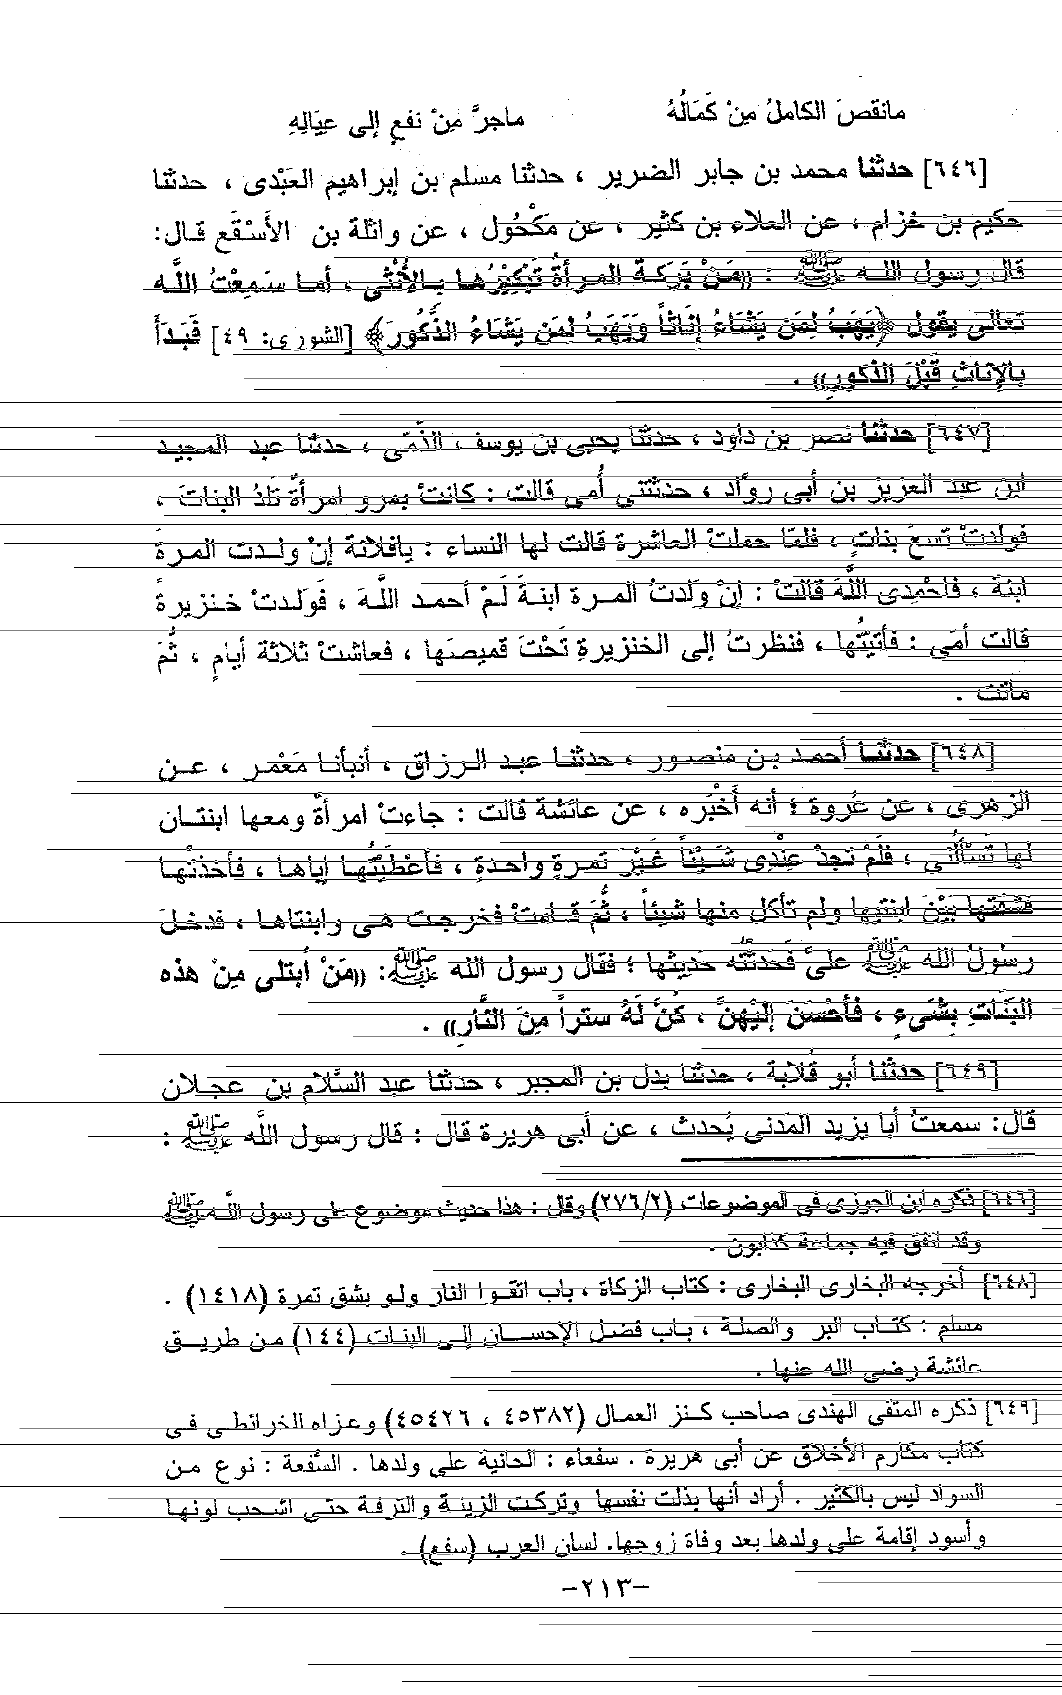 مانقصَ الكاملُ مِنْ كَمَالُهُ ماجرَّ مِنْ نفعٍ إلى عيَالِهِ
[٦٤٦] حدثنا محمد بن جابر الضرير ، حدثنا مسلم بن إبراهيم العَبْدى ، حدثنا
حكيم بن خزام ، عن العلاء بن كثير ، عن مكْحُول ، عن واثلة بن الأَسْقَع قال:
قال رسول الله ﷺ : ((مَنْ بَرَكة المرأةُ تَبْكِيْرُها بالأُنْثى ، أما سَمِعْتُ اللَّه
تعالى يقول ﴿يَهَبُ لِمَن يَشَاءُ إِنَاثاً وَيَهَبُ لمَن يَشَاءُ الذُّكُورَ﴾ [الشورى: ٤٩] فَبَدأَ
بالإنَاثِ قَبْلَ الذكورِ)) .
[٦٤٧] حدثنا نصر بن داود ، حدثنا يحيى بن يوسف ، الذَّمّى ، حدثنا عبد المجيد
ابن عبد العزيز بن أبى روَّاد ، حدثَتنى أُمى قالت : كانتْ بمرو امرأةٌ تَلدُ البنات ،
فولَدتْ تسعَ بَناتٍ ، فلمّا حملتْ العاشرة قالت لها النساء : يافلانة إنْ ولدت المرةَ
ابنة ، فاحْمِدى اللَّهَ قالتْ : إنْ وَلدتُ المرة ابنةَ لَمْ أحمد اللَّهَ ، فَولَدتْ خنزيرةً
قالت أمّى : فأتيتُها ، فنظرتُ إلى الخنزيرةِ تَحْتَ قميصَها ، فعاشتْ ثلاثة أيامٍ ، ثُمَّ
ماتت .
[٦٤٨] حدثنا أحمد بن منصور ، حدثنا عبد الرزاق ، أنبأنا مَعْمَر ، عن
الزهرى ، عن عُروة ؛ أنه أَخْبَره ، عن عائشة قالت : جاءتْ امرأةٌ ومعها ابنتان
لها تَسْأَلُنى ، فلَمْ تجدْ عِنْدِى شَيْئاً غَيْرَ تمرةٍ واحدةٍ ، فأعْطَيْتُها إياها ، فأخذتْها
فشقتها بَيْنَ ابنتيها ولم تأكل منها شيئاً ، ثُمَّ قامتْ فخرجت هى وابنتاها ، فدخلَ
رسُولُ الله ﷺ علىَّ فَحَدثَتْه حَديثها ؛ فقال رسول الله ﷺ: ((مَنْ أُبتلى مِنْ هذه
البَنَاتِ بِشَىءٍ ، فأحْسَنَ إليْهِنَّ ، كُنَّ لَهُ ستراً مِنَ النَّارِ)) .
[٦٤٩] حدثنا أبو قُلابة ، حدثنا بَدل بن المجبر ، حدثنا عبد السَّلام بن عجلان
قالَ: سمعتُ أبا يزيد المَدنى يُحدث ، عن أبى هريرة قال : قال رسول اللَّه ﷺ :
[٦٤٦] ذكره ابن الجوزى فى الموضوعات (٢/ ٢٧٦) وقال : هذا حديث موضوع على رسول اللَّه ﷺ
وقد اتفق فيه جماعة كذابون .
[٦٤٨] أخرجه البخارى البخارى : كتاب الزكاة ، باب اتقوا النار ولو بشق تمرة (١٤١٨) .
مسلم : كتاب البر والصلة ، باب فضل الإحسان إلى البنات (١٤٤) من طريق
عائشة رضى الله عنها .
[٦٤٩] ذكره المتقى الهندى صاحب كنز العمال (٤٥٣٨٢ ، ٤٥٤٢٦) وعزاه الخرائطى فى
كتاب مكارم الأخلاق عن أبى هريرة . سفعاء : الحانية على ولدها . السُّفعة : نوع من
السواد ليس بالكثير . أراد أنها بذلت نفسها وتركت الزينة والترفة حتى اشحب لونها
وأسود إقامة على ولدها بعد وفاة زوجها. لسان العرب (سفع) .
-٢١٣-